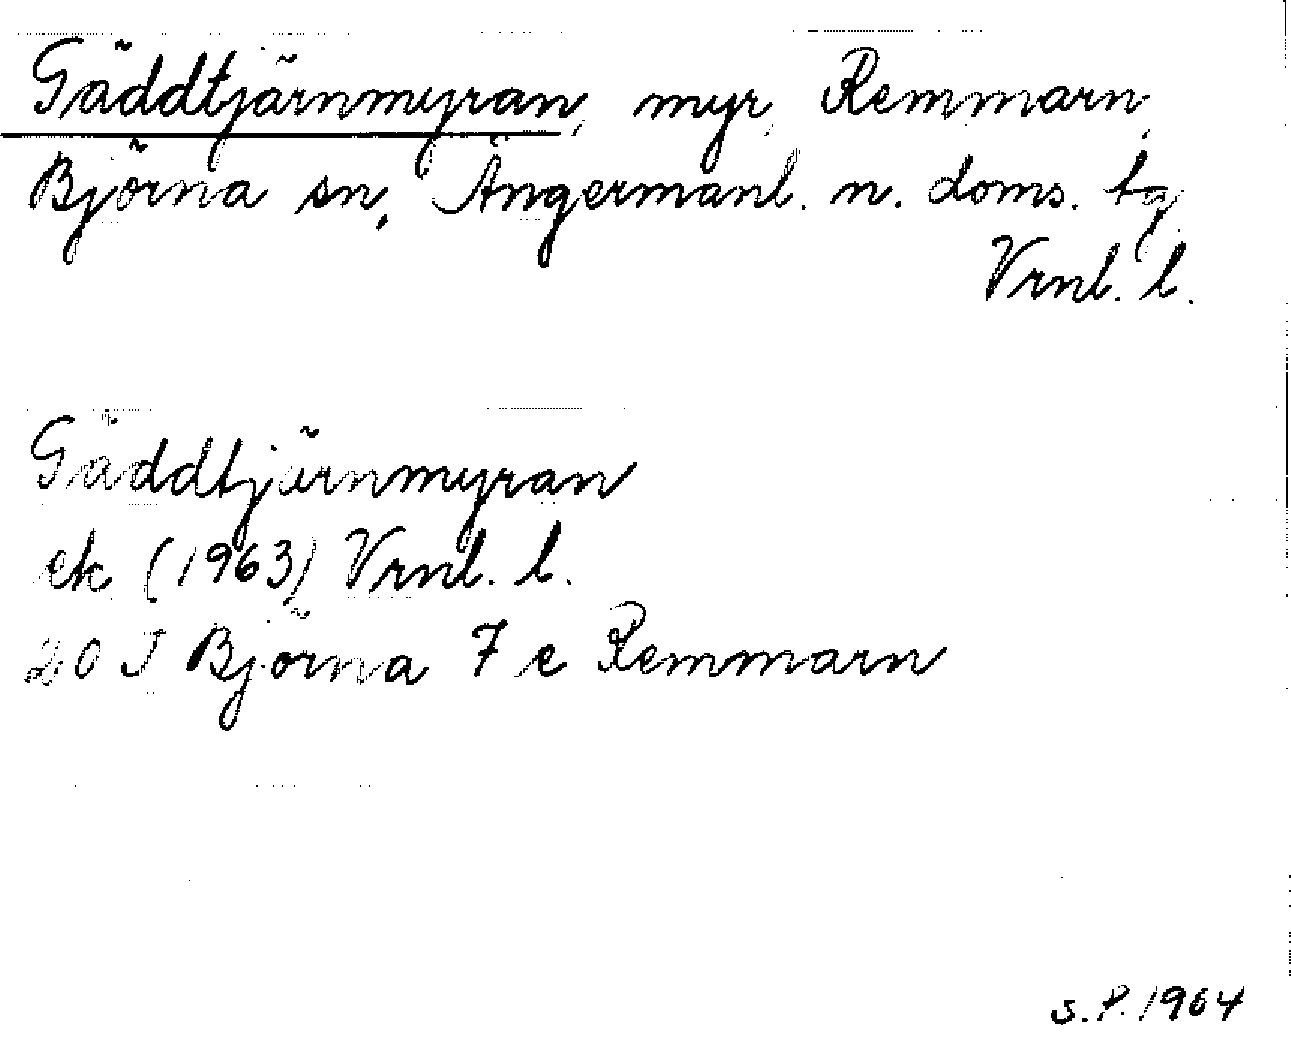 Gäddtjärnmyran, myr, Remmarn,
Björna sn, Ångermanl. n. doms. tg
Vrnl. l.
Gäddtjärnmyran
ek (1963) Vrnl. l.
20 J Björna 7 e Remmarn
S.P. 1964